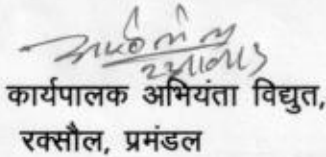 कार्यपालक अभियंता विद्युत,
रक्सौल, प्रमंडल